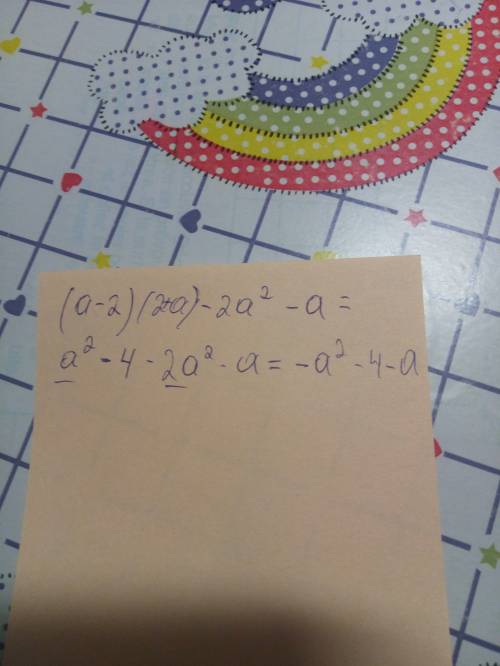 (a-2)(2+a)-2a² -a=
a² -4-2a² -a= -a² -4-a